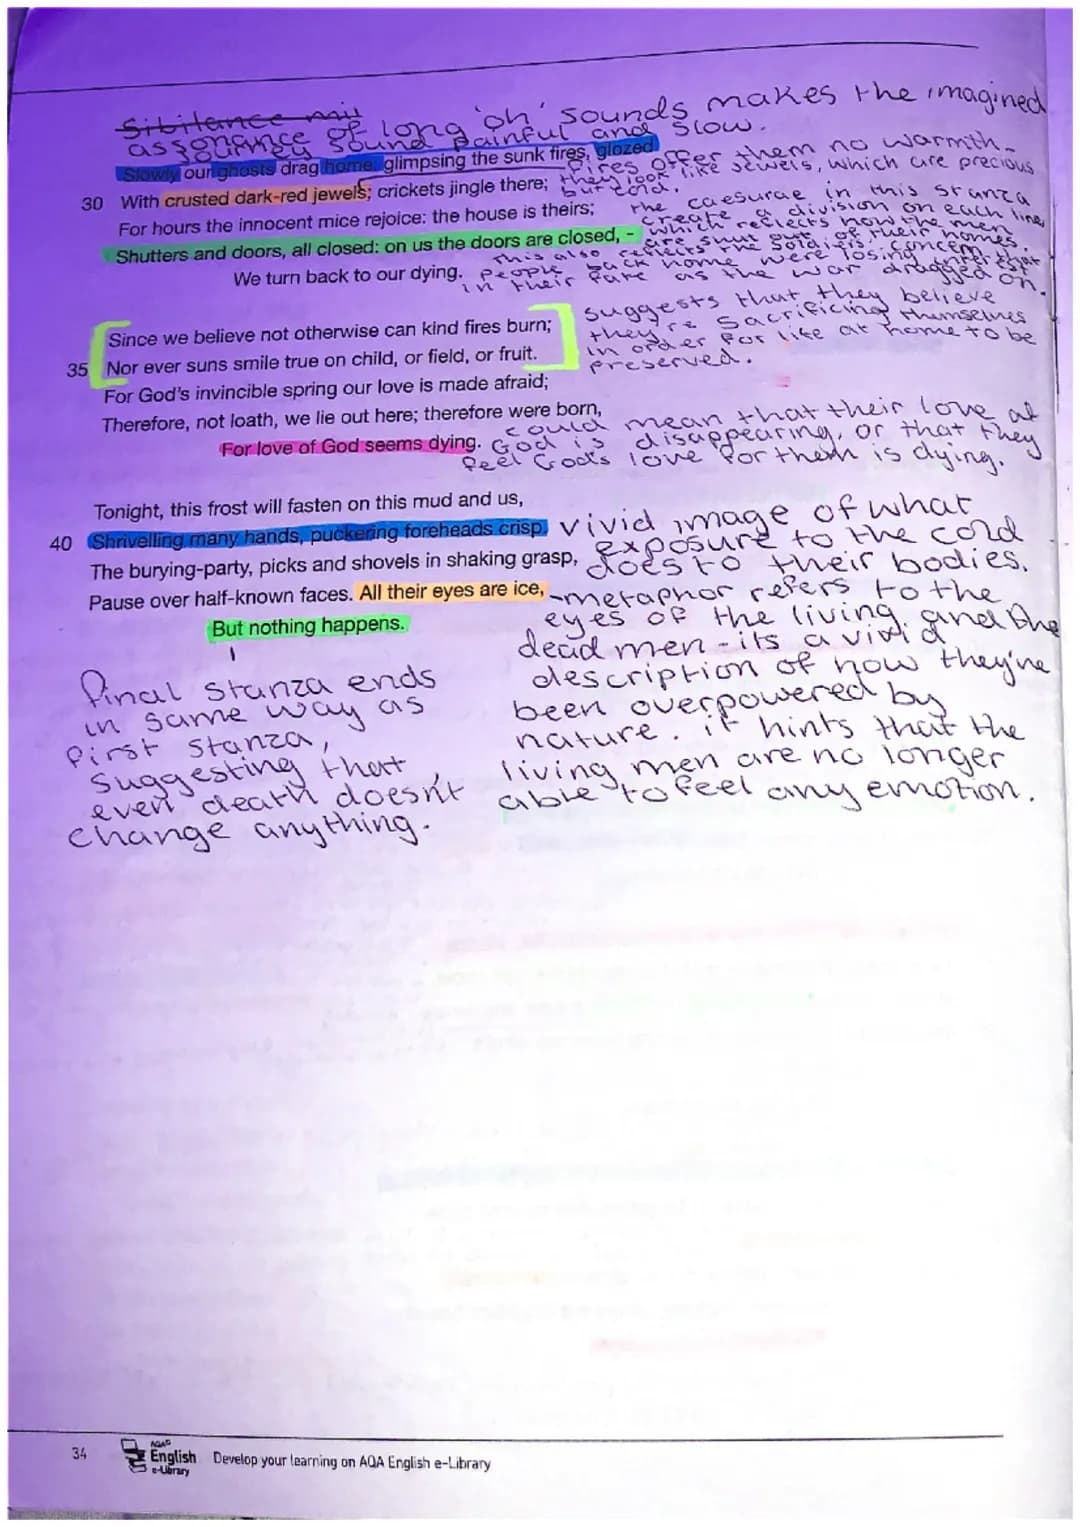 Sibilance
assonance of long 'oh' sounds makes the imagined
journey sound painful and slow.
Slowly our ghosts drag home: glimpsing the sunk fires, glozed
30 With crusted dark-red jewels; crickets jingle there;
fires offer them no warmth -
they look like jewels, which are precious
but cold.
For hours the innocent mice rejoice: the house is theirs;
Shutters and doors, all closed: on us the doors are closed, -
We turn back to our dying.
The caesurae in this stanza
create a division on each line,
which reflects how the men
are shut out of their homes.
This also reflects the soldiers' concern that
people back home were losing interest
in their fate as the war dragged on.
Since we believe not otherwise can kind fires burn;
35 Nor ever suns smile true on child, or field, or fruit.
suggests that they believe
they're sacrificing themselves
in order for life at home to be
preserved.
For God's invincible spring our love is made afraid;
Therefore, not loath, we lie out here; therefore were born,
For love of God seems dying.
could mean that their love of
God is disappearing, or that they
feel God's love for them is dying.
Tonight, this frost will fasten on this mud and us,
40 Shrivelling many hands, puckering foreheads crisp.
vivid image of what
exposure to the cold
does to their bodies.
The burying-party, picks and shovels in shaking grasp,
Pause over half-known faces. All their eyes are ice,
But nothing happens.
- metaphor refers to the
eyes of the living and the
dead men - its a vivid
description of how they're
been overpowered by
nature. it hints that the
living men are no longer
able to feel any emotion.
final stanza ends
in same way as
first stanza,
suggesting that
even death doesn't
change anything.
34
AQA
English
e-Library
Develop your learning on AQA English e-Library